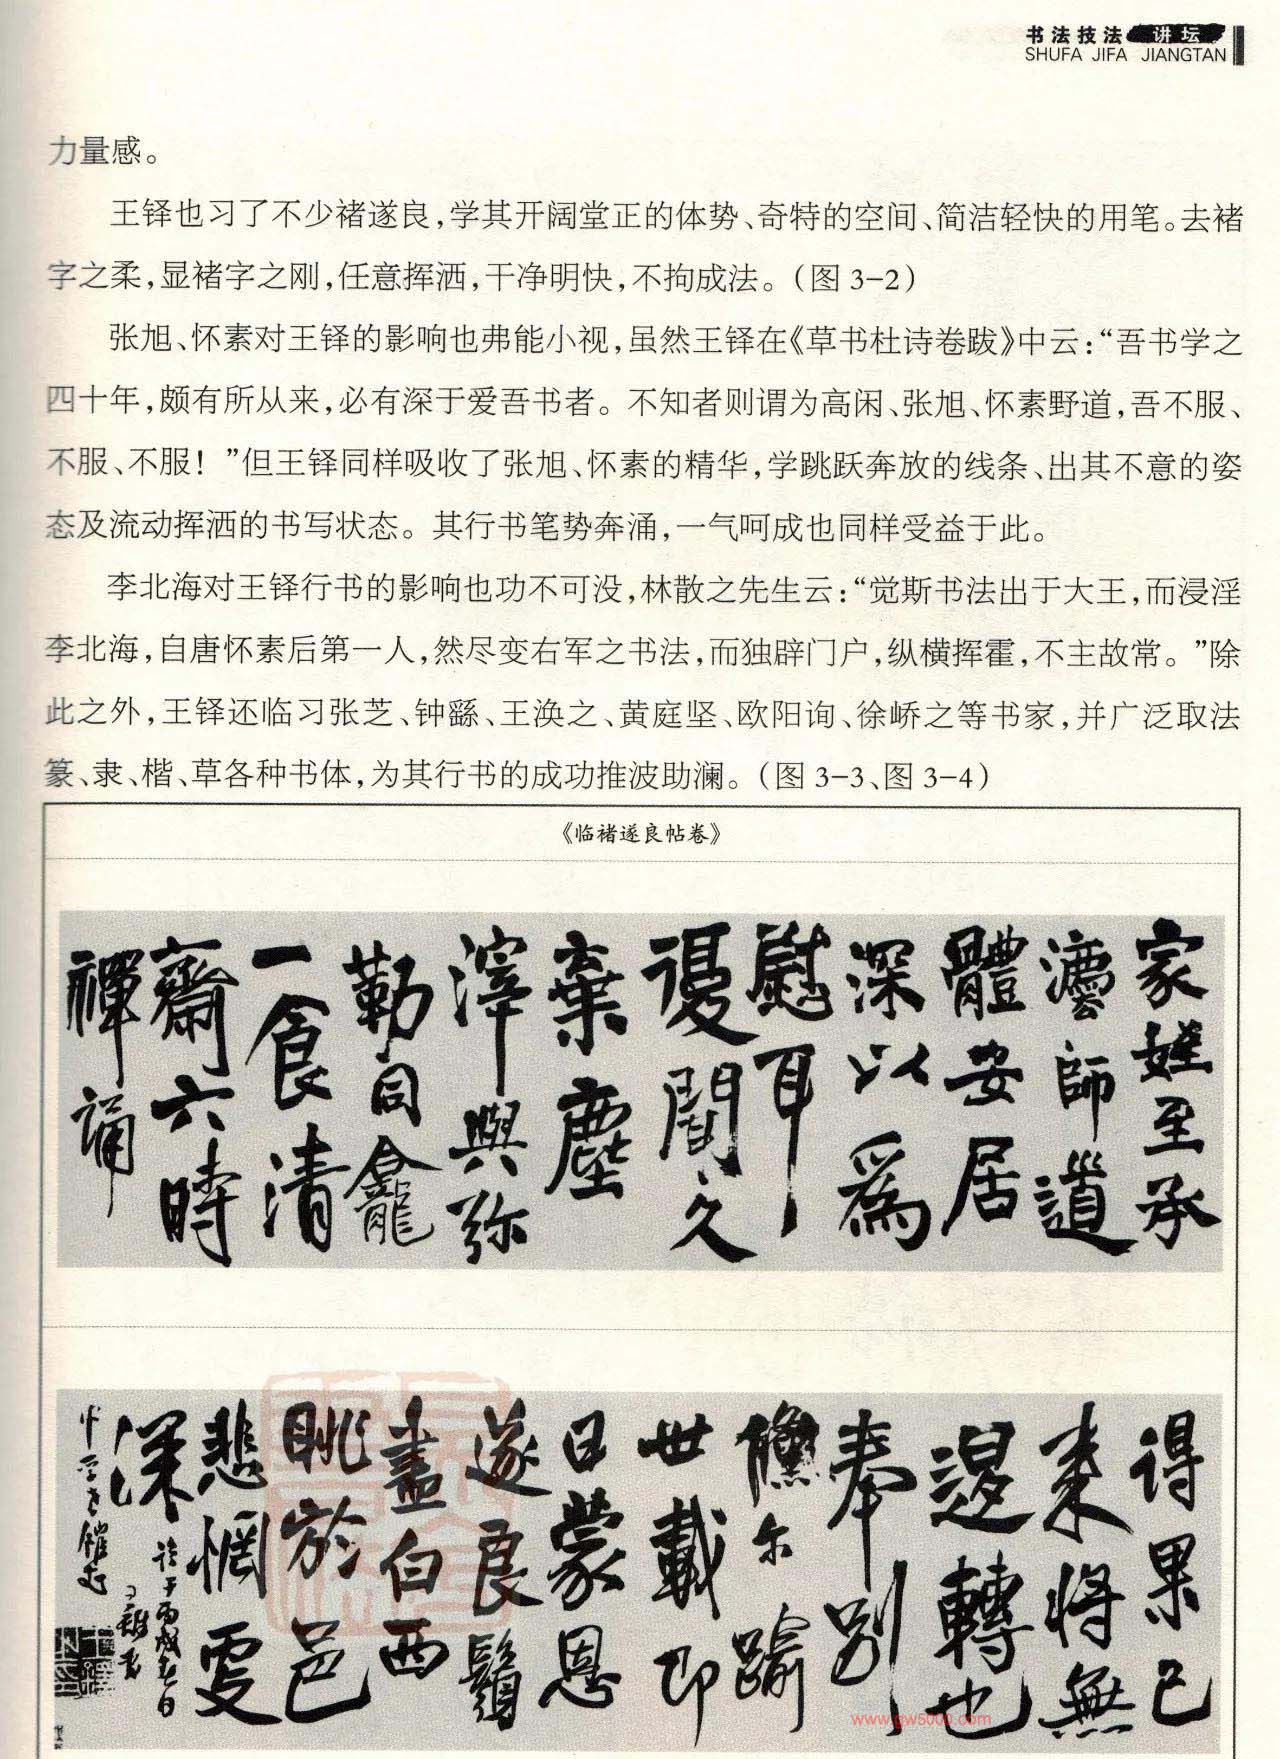 书法技法 讲坛
SHUFA JIFA JIANGTAN
力量感。
王铎也习了不少褚遂良，学其开阔堂正的体势、奇特的空间、简洁轻快的用笔。去褚
字之柔，显褚字之刚，任意挥洒，干净明快，不拘成法。（图 3-2）
张旭、怀素对王铎的影响也弗能小视，虽然王铎在《草书杜诗卷跋》中云：“吾书学之
四十年，颇有所从来，必有深于爱吾书者。不知者则谓为高闲、张旭、怀素野道，吾不服、
不服、不服！”但王铎同样吸收了张旭、怀素的精华，学跳跃奔放的线条、出其不意的姿
态及流动挥洒的书写状态。其行书笔势奔涌，一气呵成也同样受益于此。
李北海对王铎行书的影响也功不可没，林散之先生云：“觉斯书法出于大王，而浸淫
李北海，自唐怀素后第一人，然尽变右军之书法，而独辟门户，纵横挥霍，不主故常。”除
此之外，王铎还临习张芝、钟繇、王涣之、黄庭坚、欧阳询、徐峤之等书家，并广泛取法
篆、隶、楷、草各种书体，为其行书的成功推波助澜。（图 3-3、图 3-4）
《临褚遂良帖卷》
家姪至承
師道
體安居
深以爲
慰耳
復聞久
棄塵
滓與弥
勒同龕
一食清
齋六時
禪誦
得果已
来將無
退轉也
奉别
儵尔踰
世載即
日蒙恩
遂良鬚
盡白西
眺於邑
悲惘更
深
www.gw5000.com